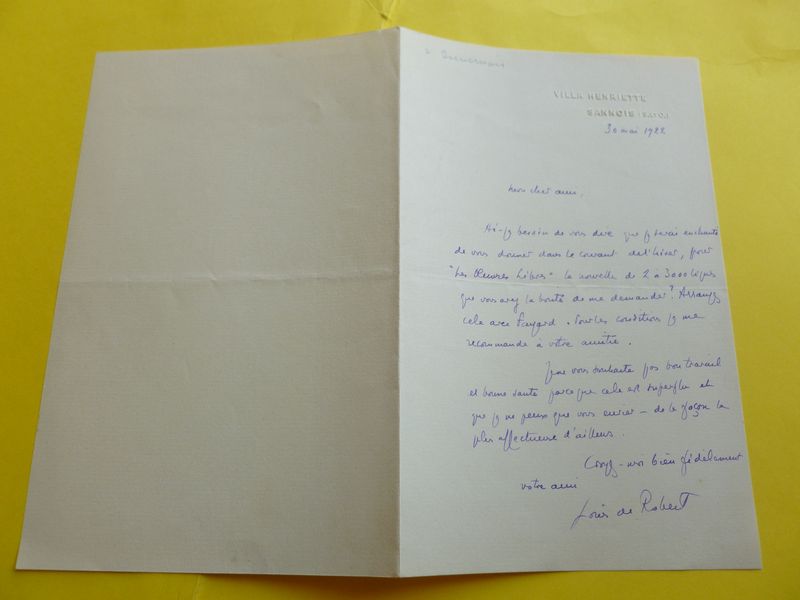 à Duvernois
VILLA HENRIETTE
SANNOIS (S-ET-O.)
30 mai 1922
Mon cher ami,
Ai-je besoin de vous dire que je serai enchanté
de vous donner dans le courant de l'hiver, pour
"Les Œuvres Libres" la nouvelle de 2 à 3000 lignes
que vous avez la bonté de me demander? Arrangez
cela avec Fayard. Pour les conditions je me
recommande à votre amitié.
Je ne vous souhaite pas bon travail
et bonne santé parce que cela est superflu et
que je ne peux que vous envier – de la façon la
plus affectueuse d'ailleurs.
Croyez-moi bien fidèlement
votre ami
Louis de Robert